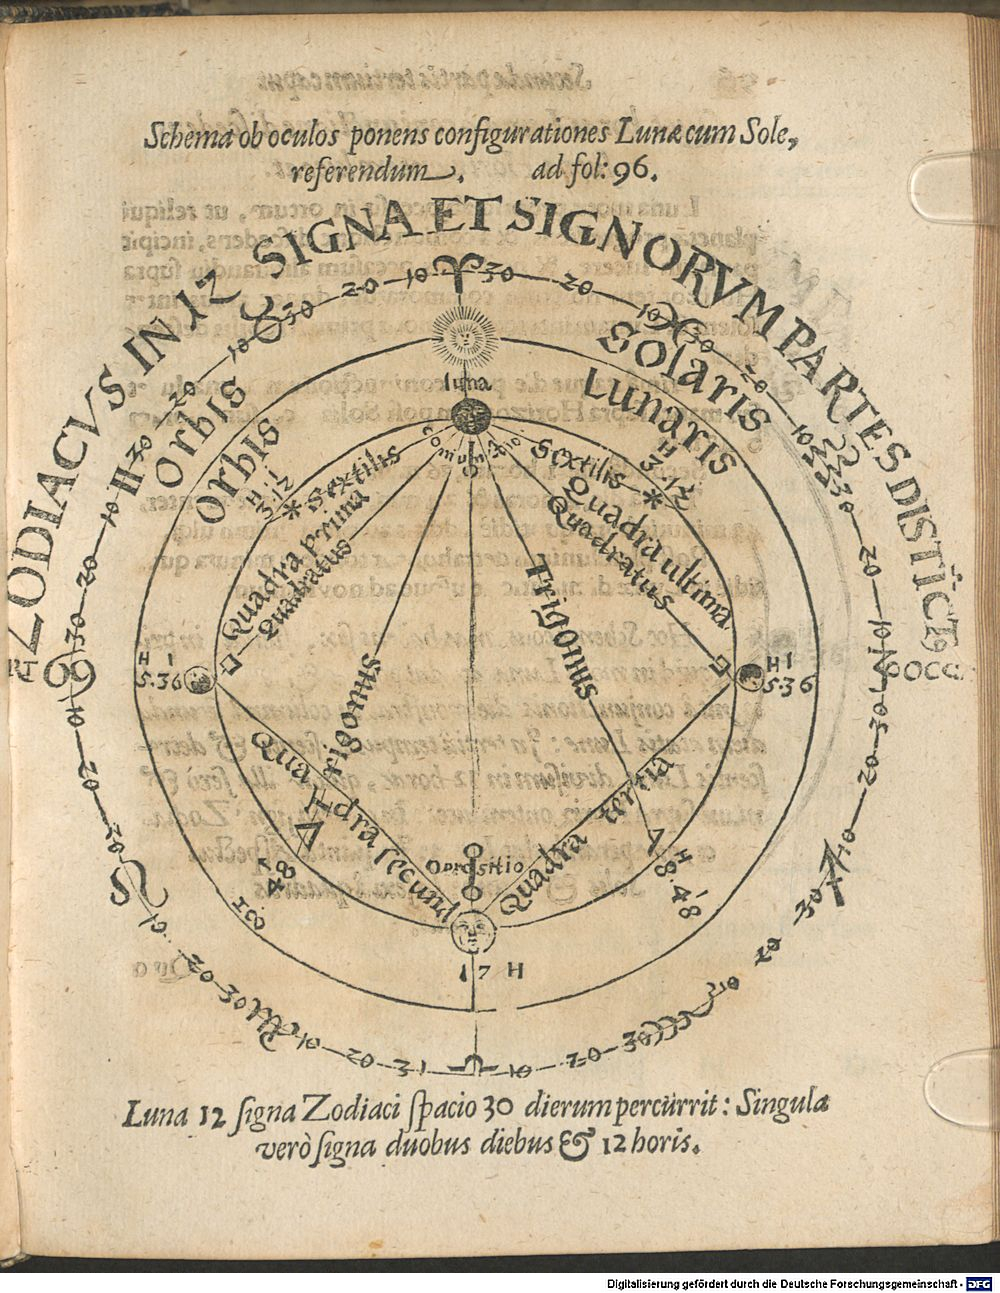 Schema ob oculos ponens configurationes Lunæ cum Sole,
referendum. ad fol: 96.
ZODIACVS IN 12 SIGNA ET SIGNORVM PARTES DISTICT9
♈ 30 20 10
30 20 10 ♉
30 20 10
♊ 30 20 10
30 20 10
♋
Orbis Solaris
Orbis Lunaris
luna
Coniunctio
☌
H
3.12
* sextilis
Sextilis *
H
3.12
Quadra prima
Quadratus
Quadra ultima
Quadratus
Trigonus
Trigonus
H 1
5.36
□
□
H 1
5.36
Quadra secund
Quadra tertia
△
△
H
18.48
H
8.48
Oppositio
☍
17 H
Luna 12 signa Zodiaci spacio 30 dierum percürrit: Singula
verò signa duobus diebus & 12 horis.
Digitalisierung gefördert durch die Deutsche Forschungsgemeinschaft - DFG